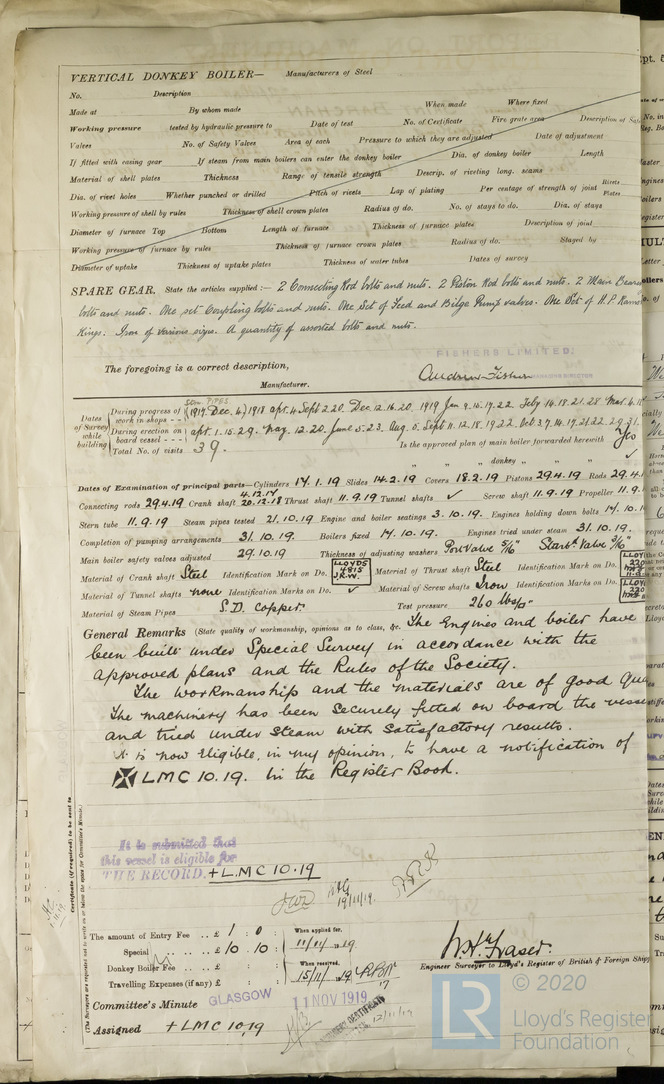 VERTICAL DONKEY BOILER— Manufacturers of Steel
No. Description
Made at By whom made When made Where fixed
Working pressure tested by hydraulic pressure to Date of test No. of Certificate Fire grate area Description of Safe
Valves No. of Safety Valves Area of each Pressure to which they are adjusted Date of adjustment
If fitted with casing gear If steam from main boilers can enter the donkey boiler Dia. of donkey boiler Length
Material of shell plates Thickness Range of tensile strength Descrip. of riveting long. seams
Dia. of rivet holes Whether punched or drilled Pitch of rivets Lap of plating Per centage of strength of joint Rivets Plates
Working pressure of shell by rules Thickness of shell crown plates Radius of do. No. of stays to do. Dia. of stays
Diameter of furnace Top Bottom Length of furnace Thickness of furnace plates Description of joint
Working pressure of furnace by rules Thickness of furnace crown plates Radius of do. Stayed by
Diameter of uptake Thickness of uptake plates Thickness of water tubes Dates of survey
SPARE GEAR. State the articles supplied:— 2 Connecting Rod bolts and nuts. 2 Piston Rod bolts and nuts. 2 Main Bearing
bolts and nuts. One set Coupling bolts and nuts. One Set of Feed and Bilge Pump valves. One Set of H.P.
Rings. Iron of various sizes. A quantity of assorted bolts and nuts.
FISHERS LIMITED.
The foregoing is a correct description,
Andrew Fisher
Manufacturer.
Dates of Survey while building
During progress of work in shops - - 1917. Dec. 4/ 1918 apr. 4. Sept 2.20. Dec. 12.16.20. 1919 Jan 9.15.17.22. Feby 14.18.21.28 Mar.
During erection on board vessel - - - apr. 1.15.29. May. 12.20. June 5.23. Aug. 5. Sept 11.12.18.19.22 Oct 3.9.14.17.21.22.29.31.
Total No. of visits 39. Is the approved plan of main boiler forwarded herewith Yes
" " " donkey " " " ✓
Dates of Examination of principal parts—Cylinders 17.1.19 Slides 14.2.19 Covers 18.2.19 Pistons 29.4.19 Rods 29.4.1
Connecting rods 29.4.19 Crank shaft 4.12.17 20.12.18 Thrust shaft 11.9.19 Tunnel shafts ✓ Screw shaft 11.9.19 Propeller 11.9.
Stern tube 11.9.19 Steam pipes tested 21.10.19 Engine and boiler seatings 3.10.19. Engines holding down bolts 17.10.1
Completion of pumping arrangements 31.10.19 Boilers fixed 17.10.19. Engines tried under steam 31.10.19.
Main boiler safety valves adjusted 29.10.19 Thickness of adjusting washers Port Valve 5/16" Starbd Valve 3/16"
Material of Crank shaft Steel Identification Mark on Do. LLOYDS 4815 J.R.W. Material of Thrust shaft Steel Identification Mark on Do.
Material of Tunnel shafts none Identification Marks on Do. ✓ Material of Screw shafts Iron Identification Marks on Do.
Material of Steam Pipes S.D. Copper. Test pressure 260 lbs/□"
General Remarks (State quality of workmanship, opinions as to class, &c. The Engines and boiler have
been built under Special Survey in accordance with the
approved plans and the Rules of the Society.
The Workmanship and the materials are of good
The machinery has been securely fitted on board the vessel
and tried under steam with satisfactory results.
It is now eligible, in my opinion, to have a notification of
LMC 10.19. in the Register Book.
It is submitted that
this vessel is eligible for
THE RECORD. + L.M.C 10.19
19/11/19.
The amount of Entry Fee .. £ 1 : 0 : When applied for,
Special .. .. £ 10 . 10 : 11/11/1919
Donkey Boiler Fee .. .. £ When received,
Travelling Expenses (if any) £ : : 15/11/1919
W. Fraser.
Engineer Surveyor to Lloyd's Register of British & Foreign Shipp
Committee's Minute GLASGOW 11 NOV 1919
Assigned + LMC 10.19
12/11/19
Certificate (if required) to be sent to
(The Surveyors are requested not to write on or below the space for Committee's Minute.)
LR
© 2020
Lloyd's Register
Foundation